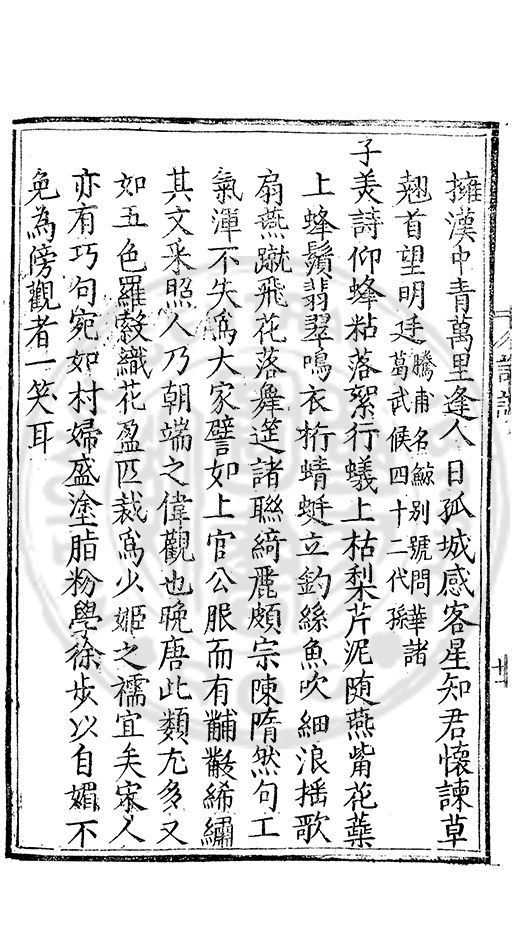 擁漢中青萬里逢人日孤城感客星知君懷諫草
翹首望明廷騰甫名鯨别號問華諸
葛武侯四十二代孫
子美詩仰蜂粘落絮行蟻上枯梨芹泥随燕觜花蘂
上蜂鬚翡翠鳴衣桁蜻蜓立釣絲魚吹細浪摇歌
扇燕蹴飛花落舞筵諸聯綺麗頗宗陳隋然句工
氣渾不失為大家譬如上官公服而有黼黻絺繡
其文采照人乃朝端之偉觀也晚唐此類尤多又
如五色羅縠織花盈匹裁為少姬之襦宜矣宋人
亦有巧句宛如村婦盛塗脂粉學徐步以自媚不
免為傍觀者一笑耳